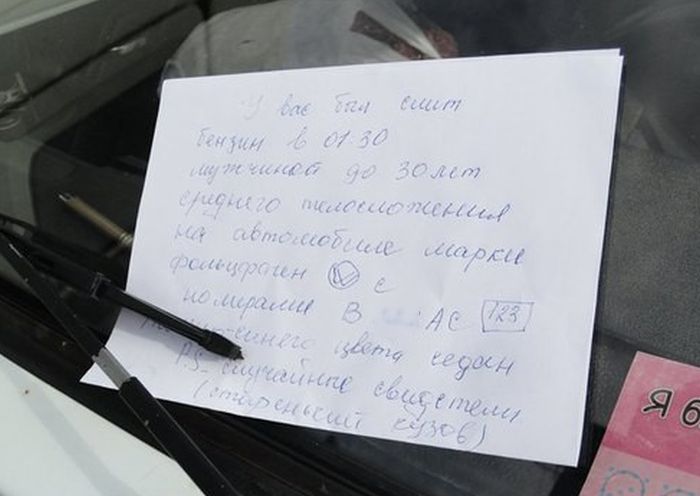 У вас был слит
бензин в 01.30
мужчиной до 30 лет
среднего телосложения
на автомобиле марки
фольцфаген W с
номерами В АС 123
цвета седан
P.S. случайные свидетели
(старенький кузов)
Я 6